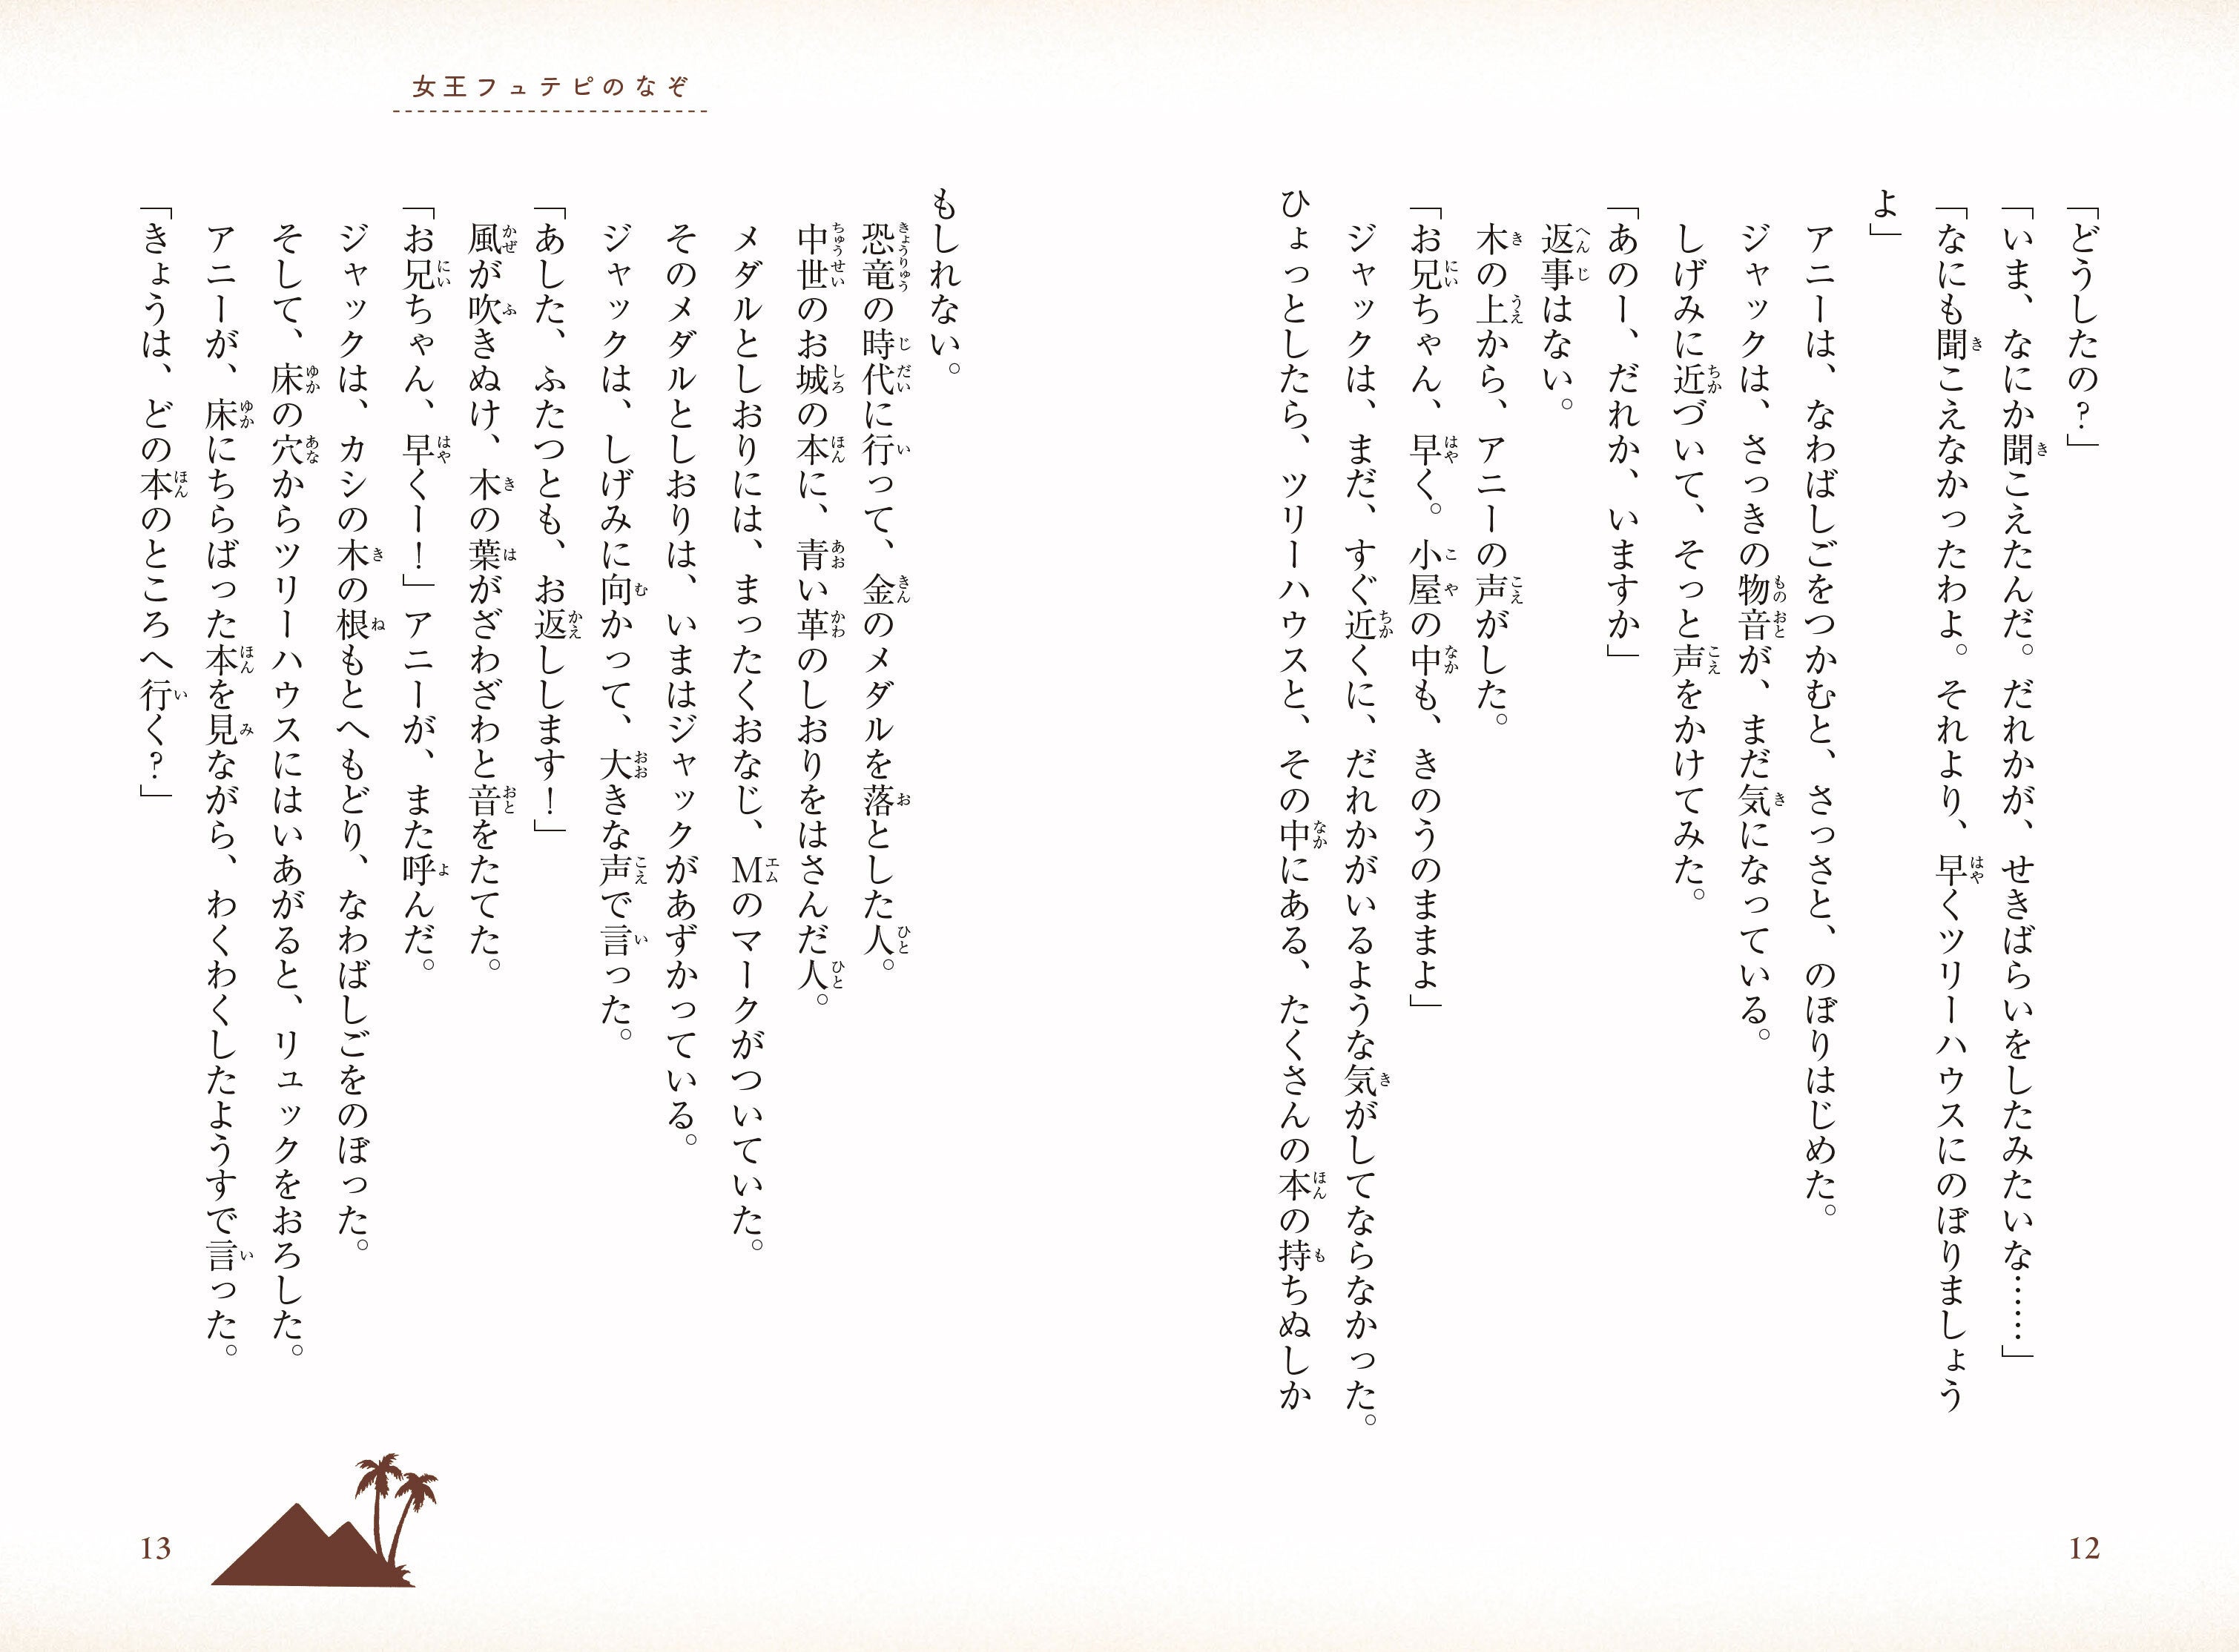 「どうしたの？」
「いま、なにか聞こえたんだ。だれかが、せきばらいをしたみたいな……」
「なにも聞こえなかったわよ。それより、早くツリーハウスにのぼりましょう
よ」
アニーは、なわばしごをつかむと、さっさと、のぼりはじめた。
ジャックは、さっきの物音が、まだ気になっている。
しげみに近づいて、そっと声をかけてみた。
「あのー、だれか、いますか」
返事はない。
木の上から、アニーの声がした。
「お兄ちゃん、早く。小屋の中も、きのうのままよ」
ジャックは、まだ、すぐ近くに、だれかがいるような気がしてならなかった。
ひょっとしたら、ツリーハウスと、その中にある、たくさんの本の持ちぬしか
12
女王フュテピのなぞ
もしれない。
恐竜の時代に行って、金のメダルを落とした人。
中世のお城の本に、青い革のしおりをはさんだ人。
メダルとしおりには、まったくおなじ、Mのマークがついていた。
そのメダルとしおりは、いまはジャックがあずかっている。
ジャックは、しげみに向かって、大きな声で言った。
「あした、ふたつとも、お返しします！」
風が吹きぬけ、木の葉がざわざわと音をたてた。
「お兄ちゃん、早くー！」アニーが、また呼んだ。
ジャックは、カシの木の根もとへもどり、なわばしごをのぼった。
そして、床の穴からツリーハウスにはいあがると、リュックをおろした。
アニーが、床にちらばった本を見ながら、わくわくしたようすで言った。
「きょうは、どの本のところへ行く？」
13